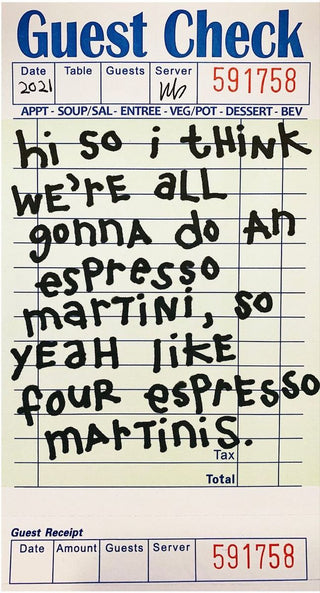 Guest Check
Date Table Guests Server 591758
2021
APPT - SOUP/SAL - ENTREE - VEG/POT - DESSERT - BEV
hi so i tHiNK
WE'rE aLL
gonnA do An
espresso
marTiNi, so
YEaH liKE
fouR espResso
mArtiniS.
Tax
Total
Guest Receipt
Date Amount Guests Server 591758